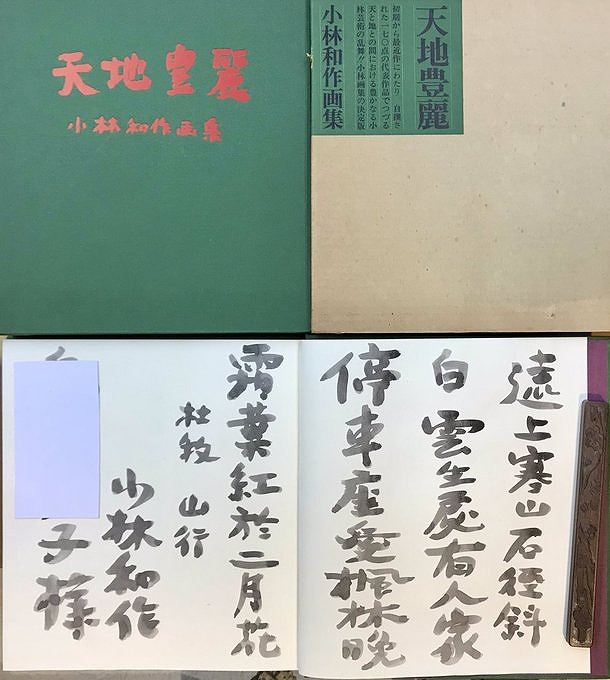 天地豊麗
小林和作画集
天地豊麗
初期から最近作にわたり 自撰さ
れた一七〇点の代表作品でつづる
天と地との間における豊かなる小
林芸術の乱舞!!小林画集の決定版
小林和作画集
遠上寒山石径斜
白雲生處有人家
停車座愛楓林晩
霜葉紅於二月花
杜牧 山行
小林和作
子様